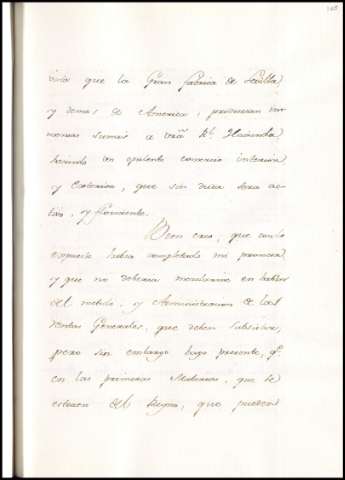 que la Gran fabrica de Sevilla,
y demas de America, produciran
mensas sumas a Rl. Hacienda
haciendo un opulento comercio interior,
y Exterior, que sin duda sera ac-
tibo, y floreciente.
Bien creo, que con lo
expuesto habia completado mi
y que no deberia en hablar
del metodo, y Administracion de las
Rentas Generales, que deben subsistir,
pero sin embargo hago presente, qe.
en las primeras Materias, que se
extraen del Reyno, que puedan